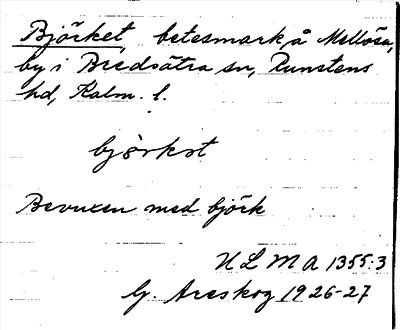 Björket, betesmark å Mellösa,
by i Bredsätra sn, Runstens
hd, Kalm. l.
björkət
Bevuxen med björk
ULMA 1355:3
G. Areskog 1926-27